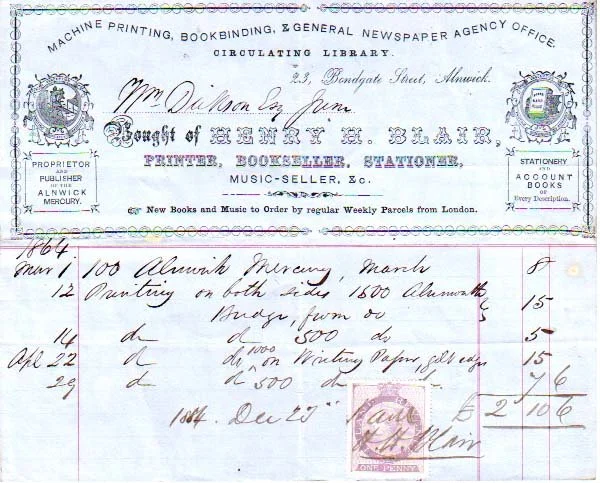 MACHINE PRINTING, BOOKBINDING, & GENERAL NEWSPAPER AGENCY OFFICE.
CIRCULATING LIBRARY.
23, Bondgate Street, Alnwick.
Wm Dickson Esq Junr
Bought of HENRY H. BLAIR,
PRINTER, BOOKSELLER, STATIONER,
MUSIC-SELLER, &c.
PROPRIETOR
AND
PUBLISHER
OF THE
ALNWICK
MERCURY.
STATIONERY
AND
ACCOUNT
BOOKS
OF
Every Description.
☞ New Books and Music to Order by regular Weekly Parcels from London.
1864
Mar 1 100 Alnwick Mercury, March 8
12 Printing on both sides 1500 Alnmouth 15
Bridge, from do
14 do do 500 do 5
Apl 22 do do 1000 on Writing Paper, gilt edges 15
29 do do 500 do 7 6
£ 2 10 6
1864. Dec 23 Paid
H. H. Blair
ONE PENNY